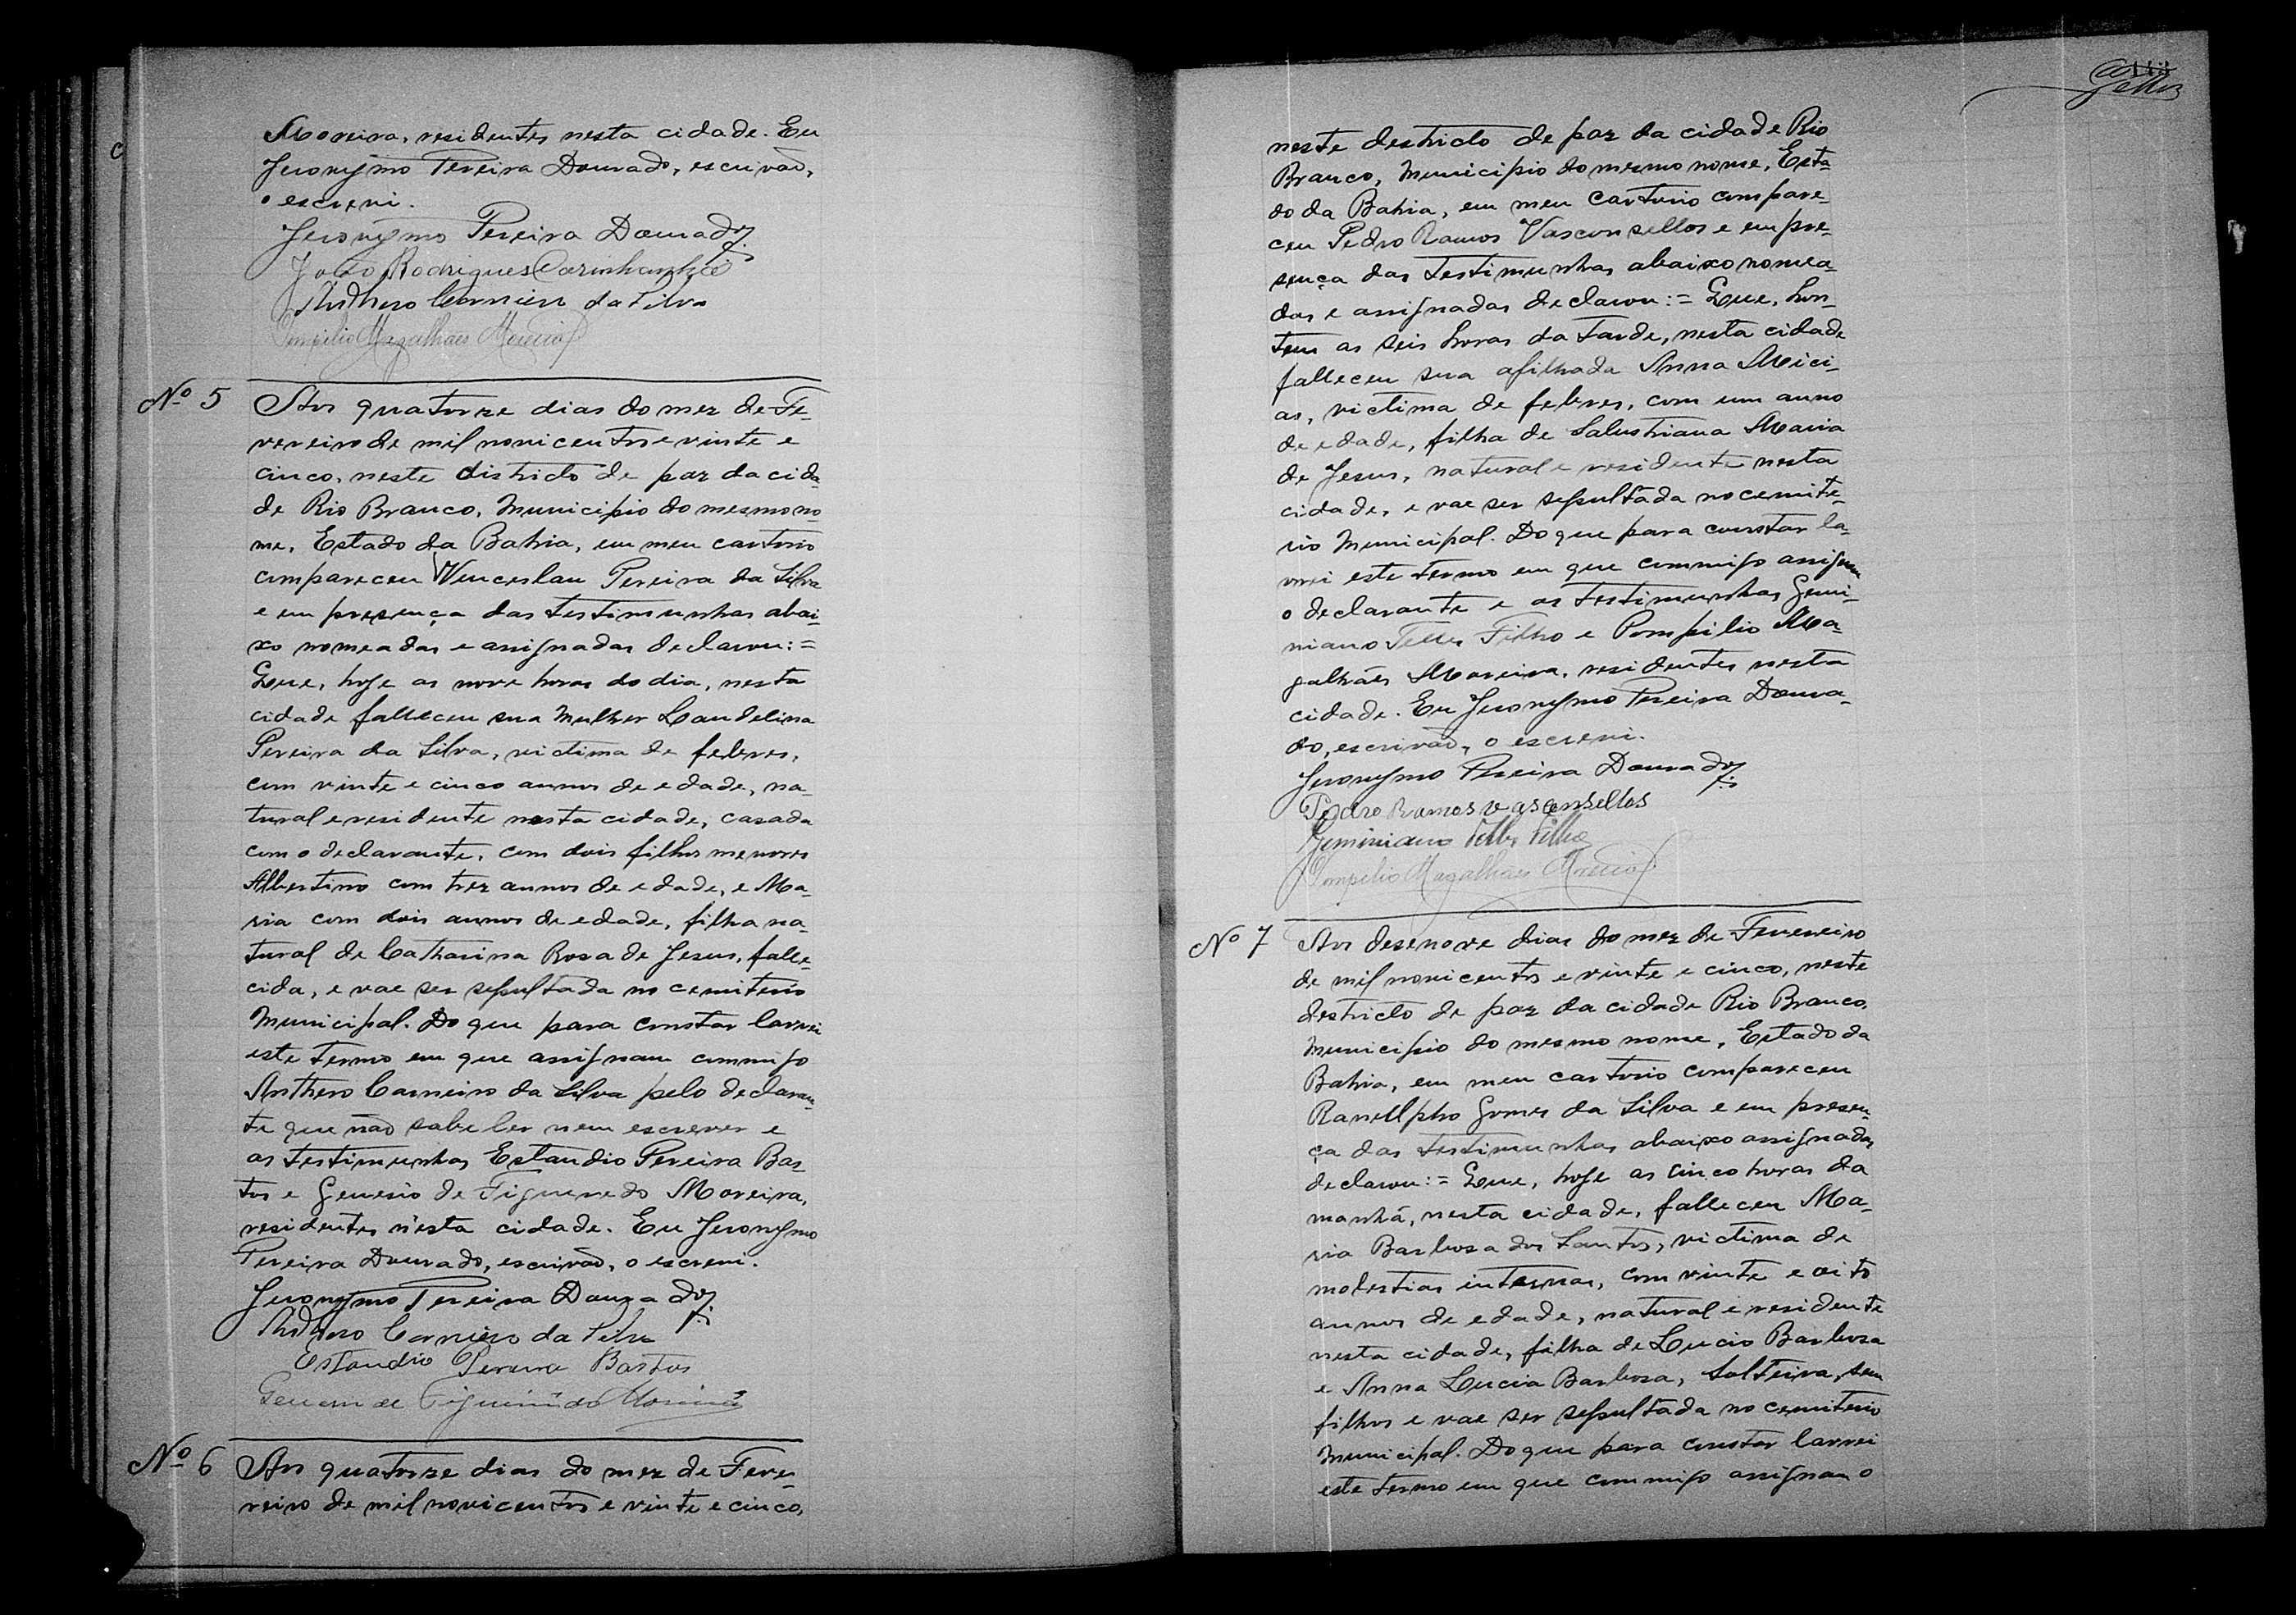 Moreira, residentes nesta cidade. Eu
Jeronymo Pereira Dourado, escrivão,
o escrevi.
Jeronymo Pereira Dourado
João Rodrigues Carinhanha
Anthero Carneiro da Silva
Pompilio Magalhães Moreira
Nº 5 Aos quatorze dias do mez de Fe-
vereiro de mil novicentos e vinte e
cinco, neste districto de paz da cida-
de Rio Branco, Municipio do mesmo no-
me, Estado da Bahia, em meu cartorio
compareceu Wenceslau Pereira da Silva
e em presença das testimunhas abai-
xo nomeadas e assignadas declarou:=
Que, hoje as nove horas do dia, nesta
cidade falleceu sua mulher Laudelina
Pereira da Silva, victima de febres,
com vinte e cinco annos de edade, na-
tural e residente nesta cidade, casada
com o declarante, com dois filhos menores
Albertino com trez annos de edade, e Ma-
ria com dois annos de edade, filha na-
tural de Catharina Rosa de Jesus, falle-
cida, e vae ser sepultada no cemiterio
Municipal. Do que para constar lavrei
este termo em que assignam commigo
Anthero Carneiro da Silva pelo declaran-
te que não sabe ler nem escrever e
as testimunhas Estandio Pereira Bas-
tos e Genesio de Figueredo Moreira,
residentes nesta cidade. Eu Jeronymo
Pereira Dourado, escrivão, o escrevi.
Jeronymo Pereira Dourado
Anthero Carneiro da Silva
Estandio Pereira Bastos
Genesio de Figueirêdo Moreira
Nº 6 Aos quatorze dias do mez de Feve-
reiro de mil novicentos e vinte e cinco,
neste destricto de paz da cidade Rio
Branco, Municipio do mesmo nome, Esta-
do da Bahia, em meu cartorio compare-
ceu Pedro Ramos Vasconsellos e em pre-
sença das testimunhas abaixo nomea-
das e assignadas declarou:= Que, hon-
tem as seis horas da tarde, nesta cidade
falleceu sua afilhada Anna Meci-
as, victima de febres, com um anno
de edade, filha de Salustriana Maria
de Jesus, natural e residente nesta
cidade, e vae ser sepultada no cemite-
rio Municipal. Do que para constar la-
vrei este termo em que commigo assignam
o declarante e as testimunhas Gemi-
niano Telles Filho e Pompilio Ma-
galhães Moreira, residentes nesta
cidade. Eu Jeronymo Pereira Doura-
do, escrivão, o escrevi.
Jeronymo Pereira Dourado
Pedro Ramos Vasconsellos
Geminiano Telles Filho
Pompilio Magalhães Moreira
Nº 7 Aos desenove dias do mez de Fevereiro
de mil novicentos e vinte e cinco, neste
destricto de paz da cidade Rio Branco,
Municipio do mesmo nome, Estado da
Bahia, em meu cartorio compareceu
Ranollpho Gomes da Silva e em presen-
ça das testimunhas abaixo assignadas
declarou:= Que, hoje as cinco horas da
manhã, nesta cidade, falleceu Ma-
ria Barbosa dos Santos, victima de
molestias internas, com vinte e oito
annos de edade, natural e residente
nesta cidade, filha de Lucio Barbosa
e Anna Lucia Barbosa, solteira, sem
filhos e vae ser sepultada no cemiterio
Municipal. Do que para constar lavrei
este termo em que commigo assignam o